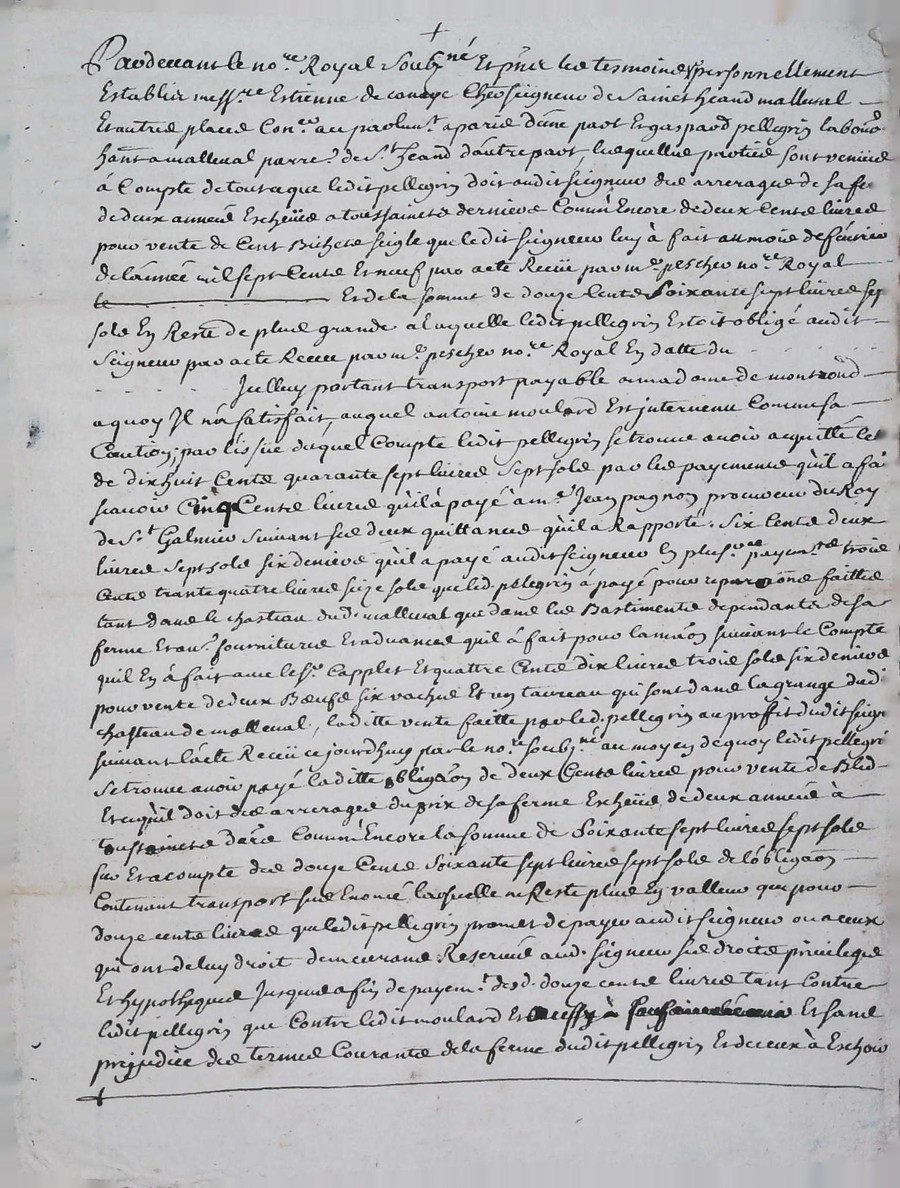 +
Pardevant le no.re Royal Soubz.né Et pnt les tesmoins personnellement
Establis mess.re Estienne de Chevr seigneur de Saint heand malleval
Et autres places Con.er au parlem.t a paris d'une part Et gaspard pellegrin labour
hant a malleval parre. de S.t heand d'autre part, lesquelles parties sont venues
à Compte de tout ce que ledit pellegrin doit audit seigneur des arrerages de sa fe
de deux années Escheües a toussaints dernière Comm'Encore de deux Cents livres
pour vente de Cent Bichets seigle que ledit seigneur luy à fait au mois de fevrier
de l'année mil sept Cents Et neuf par acte Receü par m.e pescher no.re Royal
Et de la somme de douze Cents Soixante sept livres sep
sols En Reste de plus grande a laquelle ledit pellegrin Estoit obligé audit
Seigneur par acte Receu par m.e pescher no.re Royal En datte du
Jcelluy portant transport payable a madame de montrond
a quoy Jl n'a satisfait, auquel antoine moulard Est intervenu Comme sa
Caution; par l'issue duquel Compte ledit pellegrin se trouve avoir acquitté le
de dix huit Cents quarante sept livres Sept sols par les payements qu'il a fai
scavoir Cinq Cents livres qu'il à payé à m.e Jean pagnon procureur du Roy
de S.t Galmier suivant ses deux quittances qu'il a Rapporté. Six Cents deux
livres Sept sols six deniers qu'il a payé audit seigneur En plus.res payem.ts trois
Cents trante quatre livres seize sols que led. pelegrin à payé pour reparaons faittes
tant dans le chasteau dud. malleval que dans les Bastiments dependants de sa
ferme Et au.s fournitures Et advances qu'il à fait pour la maon suivant le Compte
quil En à fait avec le s.r Capplet Et quattre Cents dix livres trois sols six deniers
pour vente de deux Bœufs six vaches Et un taureau qui sont dans la grange dud.
chasteau de malleval, la ditte vente faitte par led. pellegrin au proffit dudit seign
suivant l'acte Receü ce jourd'huy par le no.re soubz.né au moyen de quoy ledit pellegri
se trouve avoir payé la ditte obligaon de deux Cents livres pour vente de Bled
Et ce qu'il doit des arrerages du prix de sa ferme Escheüs de deux années à
toussaints der.e Comm'Encore la somme de Soixante sept livres sept sols
sur Et a compte des douze Cents Soixante sept livres sept sols de l'obligaon
Contenant transport sus Enoncé laquelle ne Reste plus En valleur que pour
douze cents livres que ledit pellegrin promet de payer audit seigneur ou a ceux
qui ont de luy droit demeurants Reservés aud. seigneur ses droits privileges
Et hypotheques Jusques a fin de payem.t desd. douze cents livres tant Contre
ledit pellegrin que Contre ledit moulard Et sans
prejudice des termes Courants de la ferme dudit pellegrin Et de ceux à Eschoir